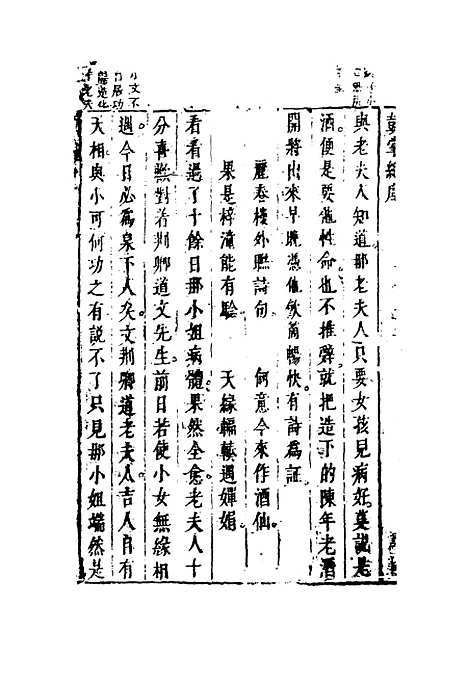 與老夫人知道那老夫人只要女孩兒病好莫說是
酒便是要他性命也不推辭就把造下的陳年老酒
開將出來早晚憑他飲甪暢快有詩為証
麗春樓外聯詩句 何意今來作酒仙
果是梓潼能有驗 天緣輻輳遇嬋娟
看看過了十餘日那小姐病體果然全愈老夫人十
分喜無對着荆卿道文先生前日若使小女無緣相
遇今日必為泉下人矣文荆卿道老夫人吉人自有
天相與小可何功之有說不了只見那小姐端然是
小文不
自居功